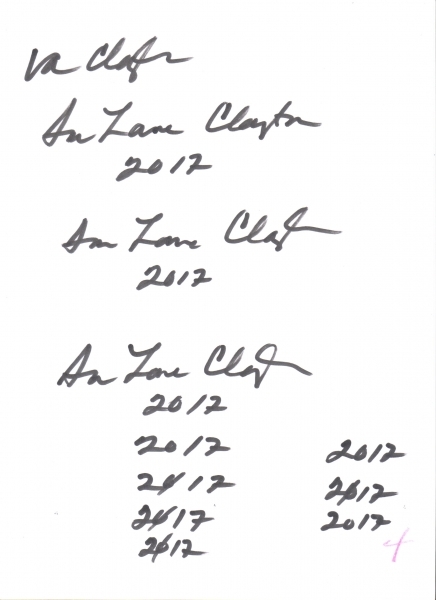 Clayton
Lane Clayton
2017
Lane Clayton
2017
Lane Clayton
2017
2017 2017
2017 2017
2017 2017
2017
4